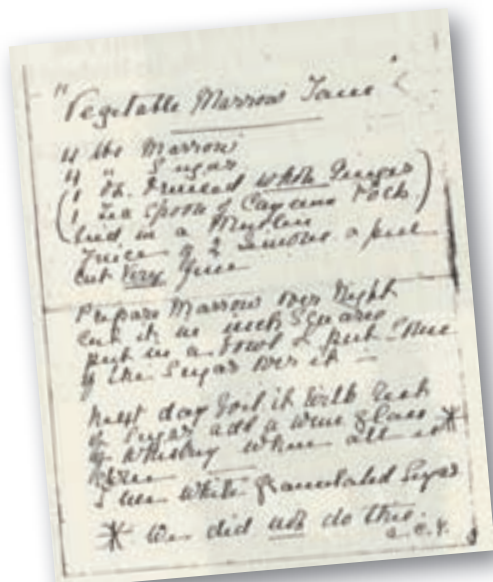 "Vegetable Marrow Jam"
4 lbs Marrow
4 " Sugar
(1 oz. Bruised whole Ginger
1 Tea spoon of Cayenne Pods)
tied in a Muslin
Juice of 2 Lemons & peel
cut Very fine
Prepare Marrow over Night
cut it in inch Squares
put in a bowl & put some
of the Sugar over it —
Next day boil it with rest
of Sugar add a wine glass
of Whiskey when all is *
I use White Granulated Sugar
* We did not do this.